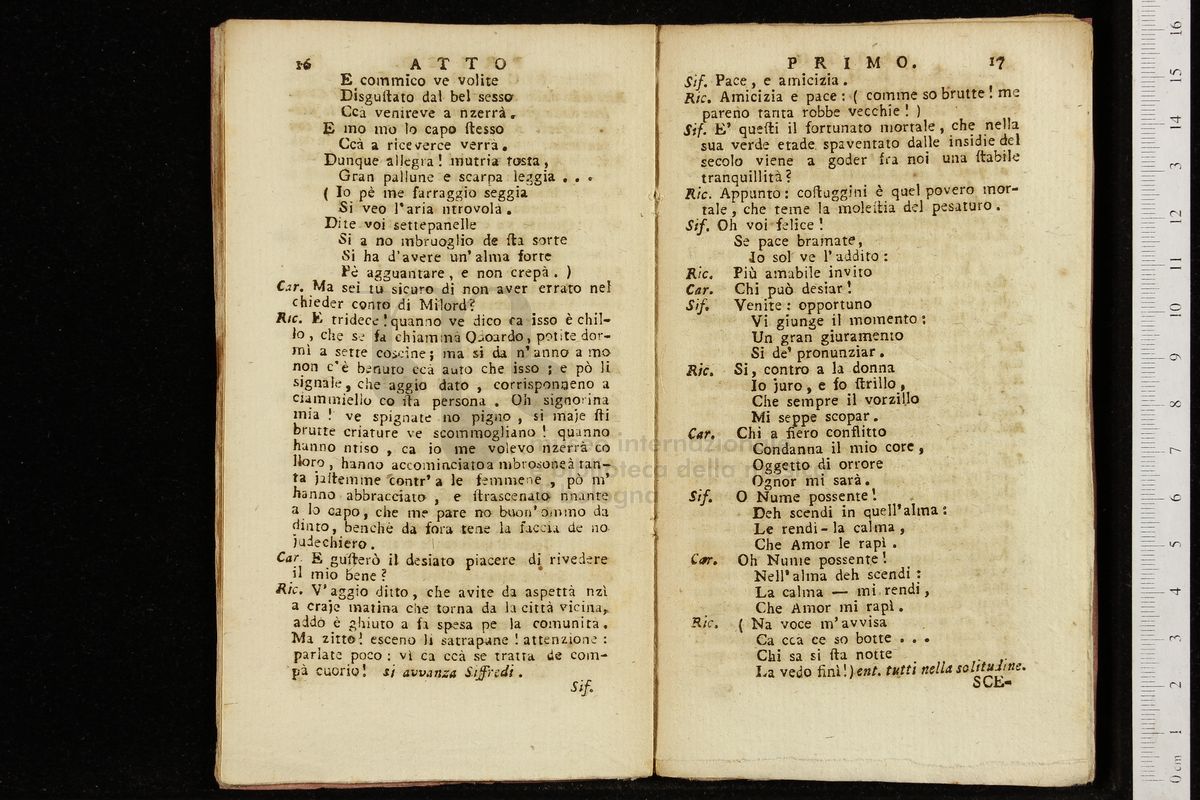 16 ATTO
E commico ve volite
Disguſtato dal bel sesso
Cca venireve a nzerrà.
E mo mo lo capo ſtesso
Ccà a riceverce verrà.
Dunque allegra! mutria tosta,
Gran pallune e scarpa leggia . . .
( Io pè me farraggio seggia
Si veo l'aria ntrovola.
Dite voi settepanelle
Si a no mbruoglio de ſta sorte
Si ha d'avere un'alma forte
Pè agguantare, e non crepà. )
Car. Ma sei tu sicuro di non aver errato nel
chieder conto di Milord?
Ric. E tridece! quanno ve dico ca isso è chil-
lo, che se fa chiammà Odoardo, potite dor-
mì a sette coscine; ma si da n'anno a mo
non c'è benuto ccà auto che isso; e pò li
signale, che aggio dato, corrisponneno a
ciammiello co ſta persona. Oh signorina
mia! ve spignate no pigno, si maje ſti
brutte criature ve scommogliano! quanno
hanno ntiso, ca io me volevo nzerrà co
lloro, hanno accominciato a mbrosoneà tan-
ta jaſtemme contr'a le femmene, pò m'
hanno abbracciato, e ſtrascenato nnante
a lo capo, che me pare no buon'ommo da
dinto, benchè da fora tene la faccia de no
judechiero.
Car. E guſterò il desiato piacere di rivedere
il mio bene?
Ric. V'aggio ditto, che avite da aspettà nzì
a craje matina che torna da la città vicina,
addò è ghiuto a fà spesa pe la comunità.
Ma zitto! esceno li satrapune! attenzione:
parlate poco: vì ca ccà se tratta de com-
pà cuorio! si avvanza Siffredi.
Sif.
PRIMO. 17
Sif. Pace, e amicizia.
Ric. Amicizia e pace: ( comme so brutte! me
pareno tanta robbe vecchie! )
Sif. E' queſti il fortunato mortale, che nella
sua verde etade spaventato dalle insidie del
secolo viene a goder fra noi una ſtabile
tranquillità?
Ric. Appunto: coſtuggini è quel povero mor-
tale, che teme la moleſtia del pesaturo.
Sif. Oh voi felice!
Se pace bramate,
Io sol ve l'addito:
Ric. Più amabile invito
Car. Chi può desiar!
Sif. Venite: opportuno
Vi giunge il momento:
Un gran giuramento
Si de' pronunziar.
Ric. Sì, contro a la donna
Io juro, e fo ſtrillo,
Che sempre il vorzillo
Mi seppe scopar.
Car. Chi a fiero conflitto
Condanna il mio core,
Oggetto di orrore
Ognor mi sarà.
Sif. O Nume possente!
Deh scendi in quell'alma:
Le rendi-la calma,
Che Amor le rapì.
Car. Oh Nume possente!
Nell'alma deh scendi:
La calma — mi rendi,
Che Amor mi rapì.
Ric. ( Na voce m'avvisa
Ca cca ce so botte . . .
Chi sa si ſta notte
La vedo finì! ) ent. tutti nella solitudine.
SCE-
museo internazionale
e biblioteca della musica
di bologna
0 cm 1 2 3 4 5 6 7 8 9 10 11 12 13 14 15 16